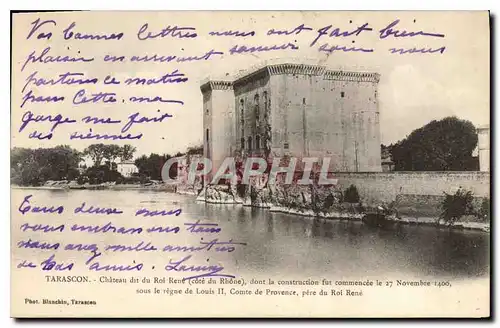 Vos bonnes lettres nous ont fait bien
plaisir en arrivant hier soir nous
partons ce matin
pour Cette, ma
gorge me fait
des siennes
CARTORUM
Tous deux nous
vous embrassons
mille amitiés
de bas
TARASCON. - Château dit du Roi René (côté du Rhône), dont la construction fut commencée le 27 Novembre 1400,
sous le règne de Louis II, Comte de Provence, père du Roi René
Phot. Blanchin, Tarascon